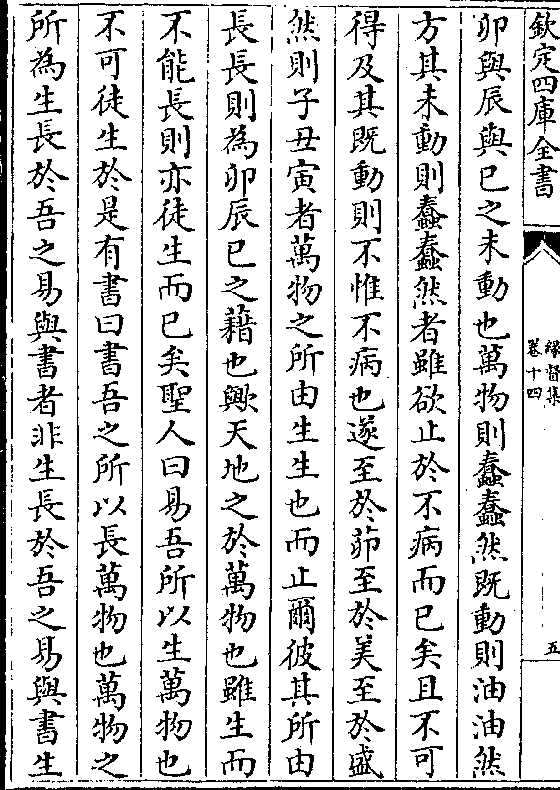 欽定四庫全書
緣督集
卷十四
五
卯與辰與巳之未動也萬物則蠢蠢然既動則油油然
方其未動則蠢蠢然者雖欲止於不病而已矣且不可
得及其既動則不惟不病也遂至於茆至於美至於盛
然則子丑寅者萬物之所由生生也而止爾彼其所由
長長則為卯辰巳之藉也歟天地之於萬物也雖生而
不能長則亦徒生而已矣聖人曰易吾所以生萬物也
不可徒生於是有書曰書吾之所以長萬物也萬物之
所為生長於吾之易與書者非生長於吾之易與書生